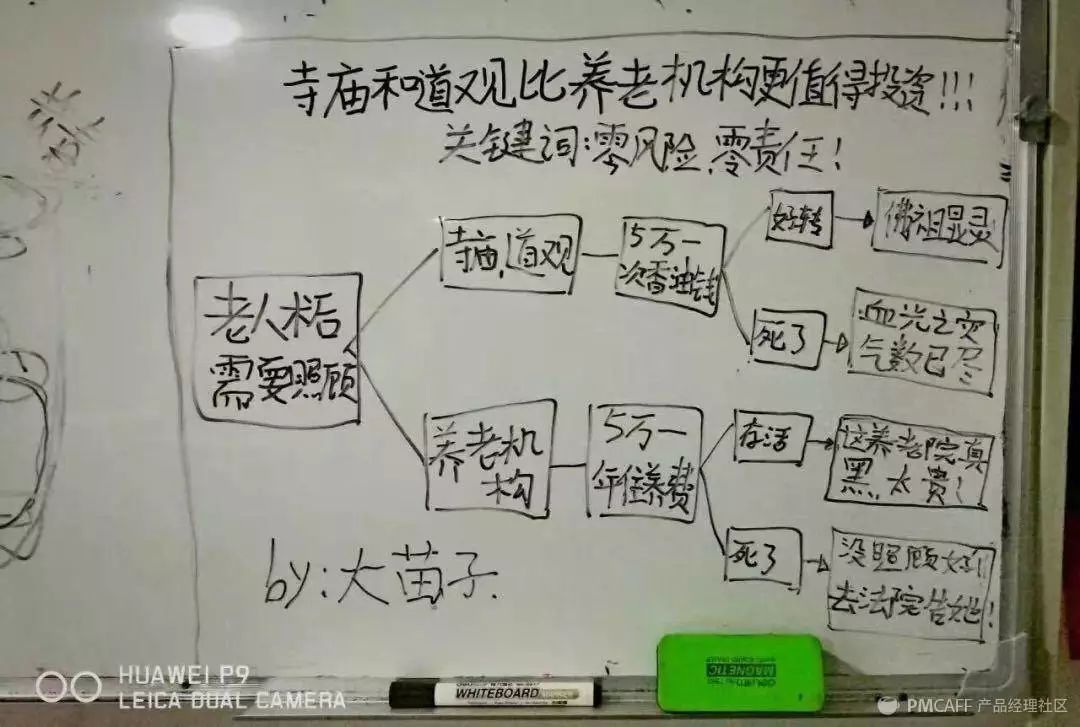 寺庙和道观比养老机构更值得投资!!!
关键词:零风险,零责任!
老人木后
需要照顾
寺庙,道观
5万一
次香油钱
好转
佛祖显灵
死了
血光之灾
气数已尽
养老机
构
5万一
年住养费
存活
这养老院真
黑,太贵!
死了
没照顾好!
去法院告她!
by:大苗子.
HUAWEI P9
LEICA DUAL CAMERA
WHITEBOARD
MAGNETIC
PMCAFF 产品经理社区